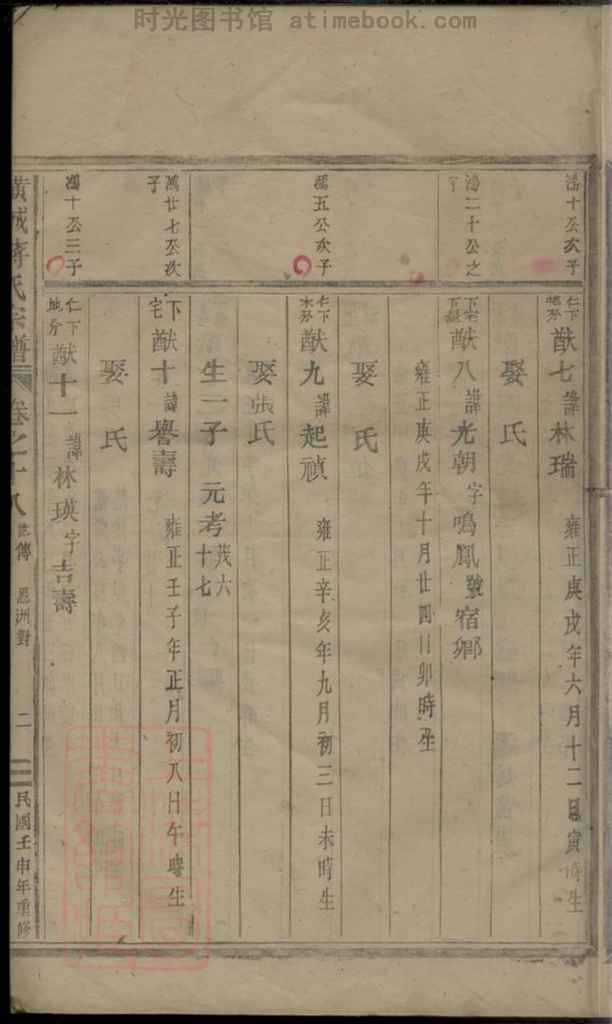 时光图书馆 atimebook.com
十公次子
仁下
猷七 諱林瑞 雍正庚戌年六月十二日寅時生
娶氏
二十公之
猷八 諱光朝字鳴鳳號宿鄉
雍正庚戌年十月廿四日卯時生
娶氏
五公次子
仁下
猷九 諱起禎 雍正辛亥年九月初三日未時生
娶張氏
生一子 元考 茂六十七
廿七公次子
下宅
猷十 諱譽壽 雍正壬子年正月初八日午時生
娶氏
十公三子
仁下地分
猷十一 諱林瑛字吉壽
橫城蔣氏宗譜 卷之十八 傳 二 民國壬申年重修